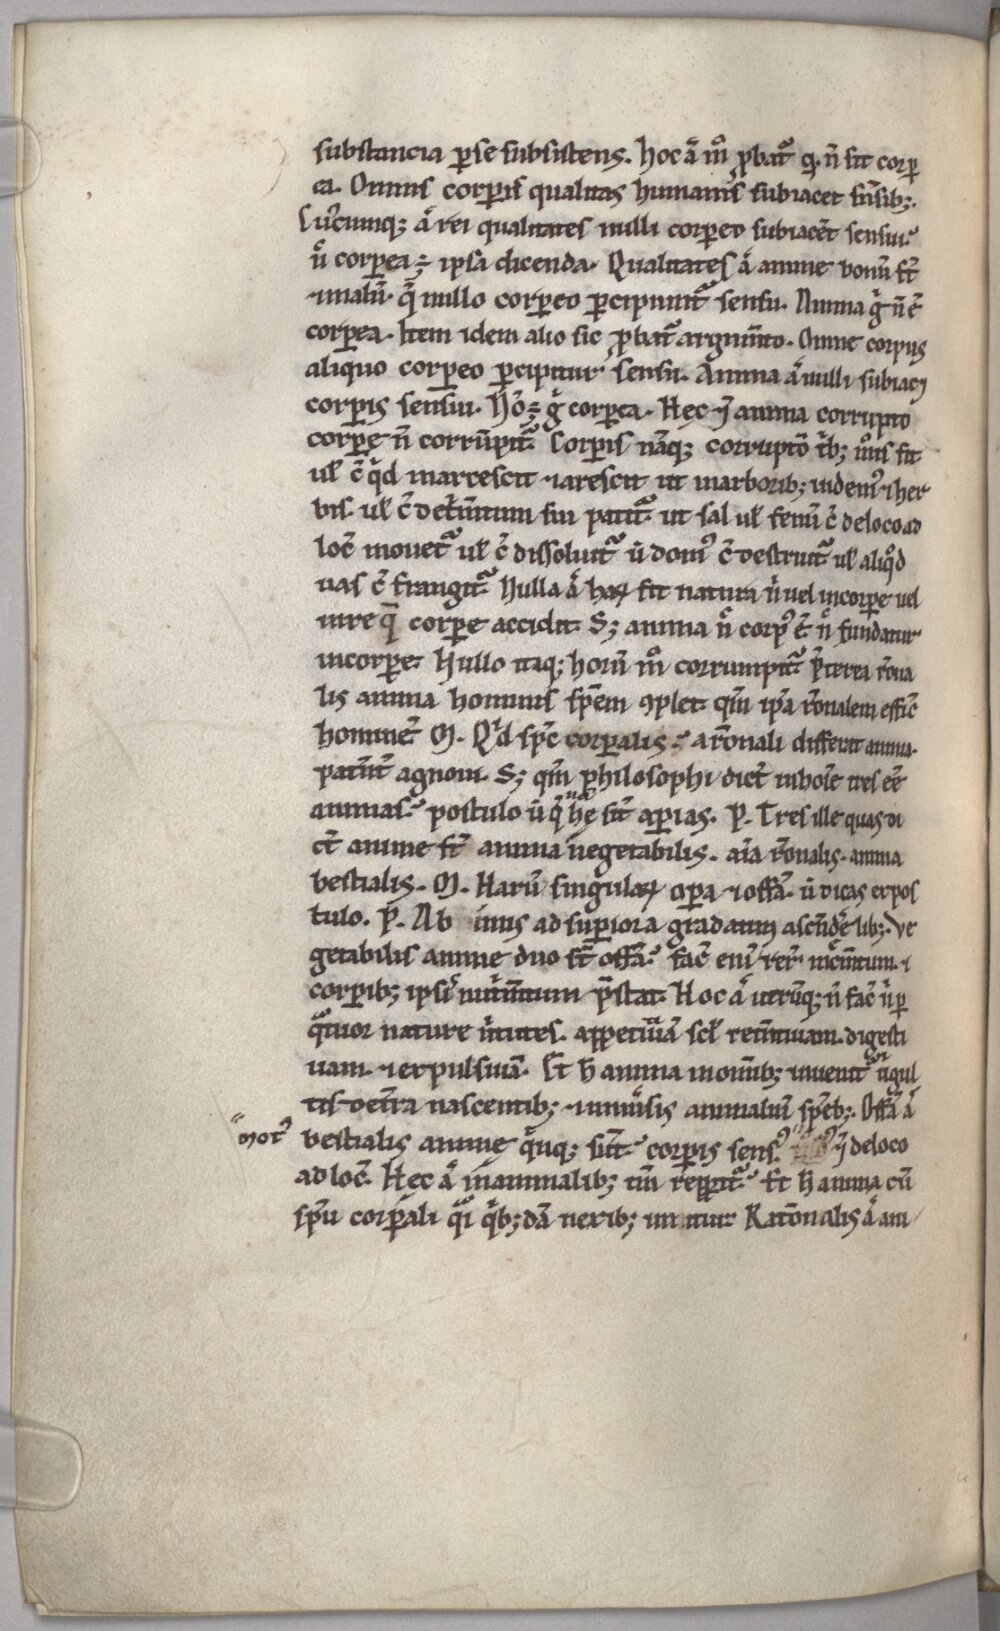 substancia ꝑse subsistens. hoc aͫ mͦ ꝓbat᷑ qͥ n̄ sit corꝑ
ea. Omnis corꝑis qualitas humanis subiacet sn̄sib;.
Cuꝰcumq; aͫ rei qualitates nulli corꝑeo subiacēt sensui.
n̄ corꝑea ÷ ipsa dicenda. Qualitates aͫ anime bonū st̄
⁊ malū. q̄ nullo corꝑeo ꝑcipiunt᷑ sensu. Anima gͦ n̄ ē
corꝑea. Item idem alio sic ꝓbat᷑ argum̄to. Omne corpus
aliquo corꝑeo ꝑcipitur sensu. Anima aͫ nulli subiacꝫ
corꝑis sensui. Nō ÷ gͦ corꝑea. Hęc ⁊ anima corrupto
corꝑe n̄ corrūpit᷑. Corꝑis nāq; corruptō tͥb; mͦis fit.
ul̄ cū qͥd marcescit ⁊ arescit ut in arborib; uidemꝰ ⁊ her
bis. ul̄ cū det̄mtum sui patit᷑. ut sal ul̄ fenū cū de loco ad
locū mouet᷑ ul̄ cū dissoluit᷑ ū domꝰ cū destruit᷑ ul̄ aliqͦd
uas cū frangit᷑. Nulla aͫ haꝝ fit natura nͥ uel in corꝑe uel
in re qͣ corꝑe accidit. S; anima n̄ corpꝰ ē. n̄ fundatur
in corꝑe. Nullo itaq; horū mͦ corrumpit᷑. P̄terea rōna
lis anima hominis spēm ꝯplet qm̄ ipa rōnalem effic̄
hominē. M. Qͥd spc̄ corꝑalis. a rōnali differat anima.
patēt agnoui. S; qm̄ philosophi dicūt in hoīe tres eē
animas. postulo ū q̄ hę sīt aꝑias. P. Tres ille quas di
cūt anime st̄ anima uegetabilis. aīa rōnalis. anima
bestialis. M. Harū singulaꝝ oꝑa ⁊ offā. ū dicas expos
tulo. P. Ab imis ad suꝑiora gradatim ascēdē̄ libꝫ. Ve
getabilis anime duo st̄ offā. fac̄ enī rerꝰ inc̄m̄tum. ⁊
corꝑib; ipsͥ nut̄m̄tum p̄stat. Hoc aͫ utrūq; n̄ fac̄ nͥ ꝑ
qͣtuor nature ūtutes. appetitͥuā scl̄ retētiuam. digesti
uam. ⁊ expulsiuā. Et h̄ anima in omīb; inuenit᷑ uͥgul
tis de t̄ra nascentib; ⁊ in uniūsis animaliū spēb;. Offā aͫ
bestialis anime qͥnq; sūt corꝑis sensꝰ. ⁊ de loco
"motꝰ
ad locū. Hęc aͫ in animalib; tm̄ reꝑit᷑. Et h̄ anima cū
spū corꝑali qͣi qͥb; dā nexib; unitur Ratōnalis aͫ ani